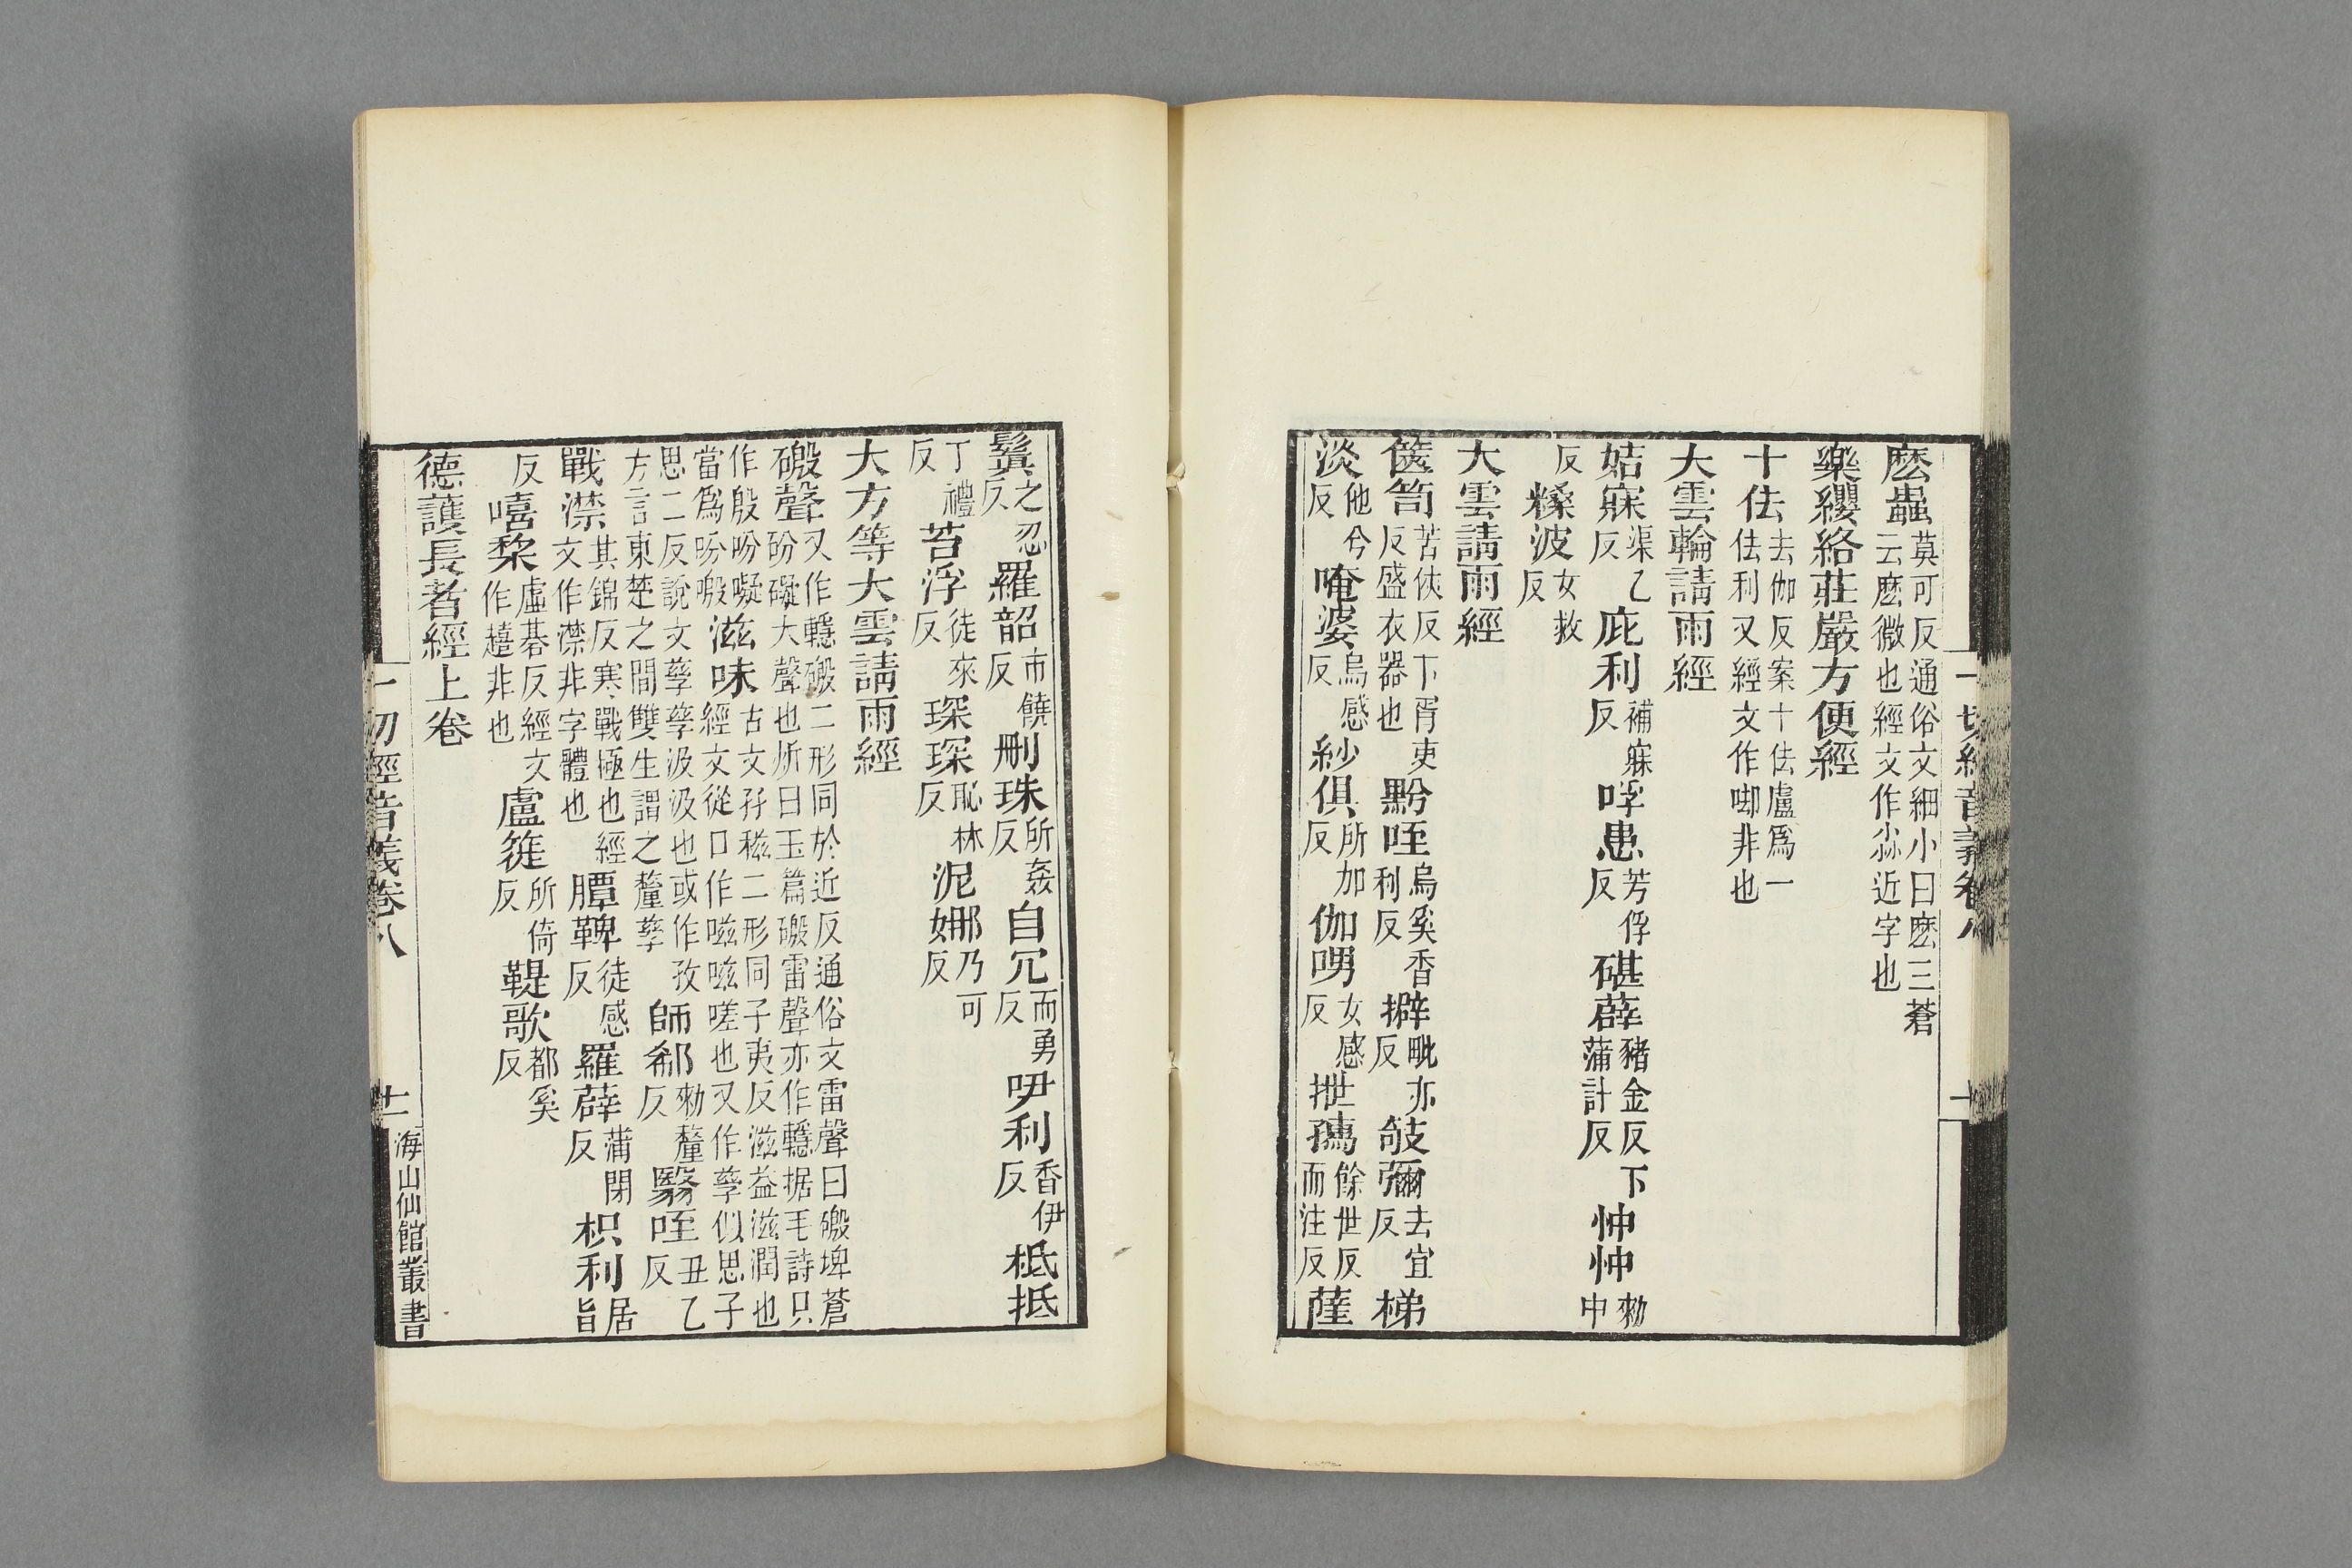 麽蟲莫可反通俗文細小曰麽三蒼云麽微也經文作尛近字也
樂纓絡莊嚴方便經
十佉去伽反案十佉盧爲一佉利又經文作呦非也
大雲輪請雨經
姞寐渠乙反庇利補寐反呼患芳俘反碪薜豬金反下蒲計反忡忡勑中
反糅波女救反
大雲請雨經
篋笥苦俠反下胥吏反盛衣器也黔咥烏奚香利反擗毗亦反攱彌去宜反梯
淡他兮反唵婆烏感反紗俱所加反伽嘮女感反抴㺐餘世反而注反薩
一切經音義卷八
十一
鬒之忍反羅韶市饒反刪珠所姦反自冗而勇反吚利香伊反柢抵
丁禮反苔浮徒來反琛琛恥林反泥娜乃可反
大方等大雲請雨經
磤聲又作轀磤二形同於近反通俗文雷聲曰磤埤蒼砏磤大聲也所曰玉篇磤雷聲亦作轀据毛詩只
作殷吩噷當爲吩噷滋味古文孖稵二形同子夷反滋益滋潤也經文從口作嗞嗞嗟也又作孳似思子
思二反說文孳孳汲汲也或作孜方言東楚之間雙生謂之釐孳師郗勑釐反翳咥丑乙反
戰㯲其錦反寒戰極也經文作㯲非字體也贉鞞徒感反羅薜蒲閉反枳利居旨
反嘻棃虛碁反經文作趌非也盧簁所倚反鞮歌都奚反
德護長者經上卷
一切經音義卷八
十一
海山仙館叢書